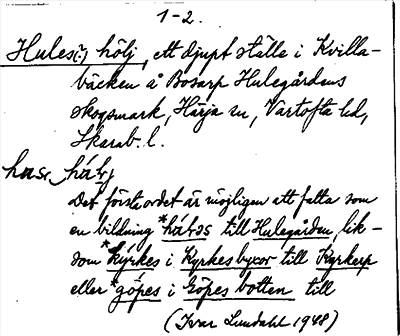 1-2.
Hules(?) hölj, ett djupt ställe i Kvilla-
bäcken å Bosarp Hulegårdens
skogsmark, Härja sn, Vartofta hd,
Skarab. l.
Det första ordet är möjligen att fatta som
en bildning till Hulegården, lik-
som *kýrkes i Kyrkesbyxor till Kyrkerp
eller *göpes i Göpes botten till
(Ivar Lundahl 1948)